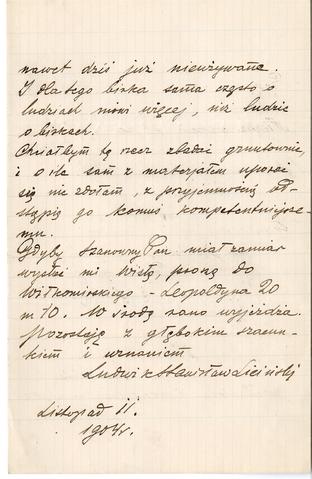 nawet dziś już nieużywane.
I dla tego birka sama często o
ludziach mówi więcej, niż ludzie
o birkach.
Chciałbym tę rzecz zbadać gruntownie,
i o ile sam z materjałem uporać
się nie zdołam, z przyjemnością od-
stąpię go komuś kompetentniejsze-
mu.
Gdyby Szanowny Pan miał zamiar
wysłać mi Wisłę, proszę do
Witkomirskiego - Leopoldyna 20
m 10. W środę rano wyjeżdżam.
Pozostaję z głębokim szacun-
kiem i uznaniem
Ludwik Stanisław Liciński
Listopad 11.
1904r.